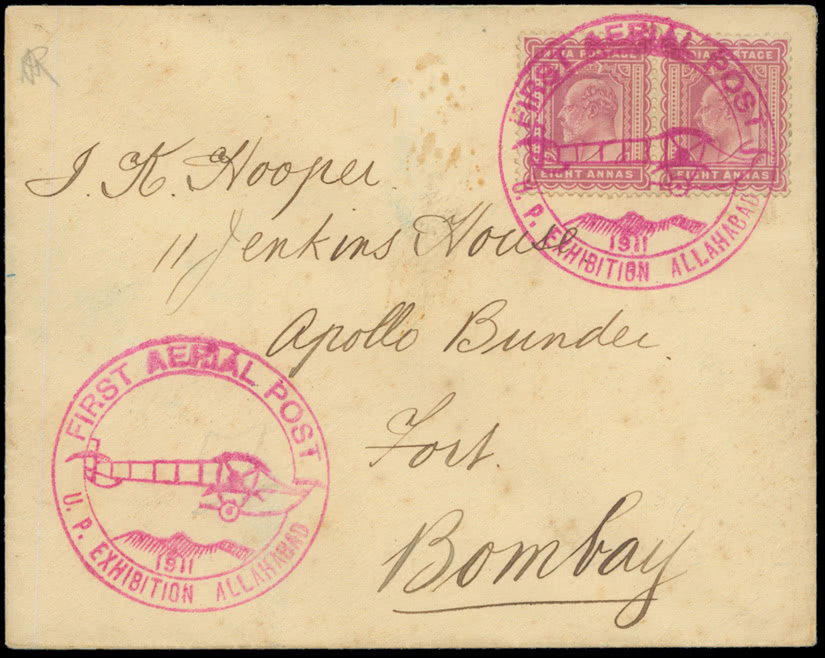 FIRST AERIAL POST
INDIA POSTAGE
INDIA POSTAGE
EIGHT ANNAS
EIGHT ANNAS
1911
U. P. EXHIBITION ALLAHABAD
J. K. Hooper.
11 Jenkins House
Apollo Bunder.
Fort.
Bombay
FIRST AERIAL POST
1911
U. P. EXHIBITION ALLAHABAD